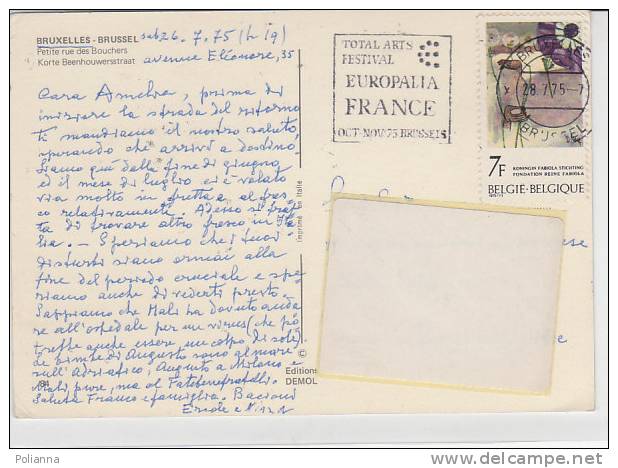 BRUXELLES - BRUSSEL
Petite rue des Bouchers
Korte Beenhouwersstraat
sab 26.7.75 (h 19)
avenue Eléonore, 35
Cara Amelia, prima di
iniziare la strada del ritorno
ti mandiamo il nostro saluto,
sperando che arrivi a destino.
Siamo quà dalla fine di giugno
ed il mese di luglio ci è volato
via molto in fretta e al fres
co relativamente. Adesso si
ta di trovare altro fresco in Ita
lia. - Speriamo che i tuoi
disturbi siano ormai alla
fine del periodo cruciale e spe
riamo anche di vederti presto.
Sappiamo che Mali ha dovuto anda
re all'ospedale per un virus (che po
trebbe anche essere un colpo di sole)
Le bimbe di Augusto sono al mare
sull'Adriatico, Augusto a Milano e
Mali pure, ma al Fatebenefratelli.
Saluta Franco e famiglia. Bacioni
Ercole e
84
imprimé en Italie
© Editions
DEMOL
TOTAL ARTS
FESTIVAL
EUROPALIA
FRANCE
OCT-NOV 75 BRUSSELS
BRUXELLES
x 28.7.75-7
BRUSSEL
7F
KONINGIN FABIOLA STICHTING
FONDATION REINE FABIOLA
BELGIË-BELGIQUE
ese
Polianna
http://www.delcampe.net